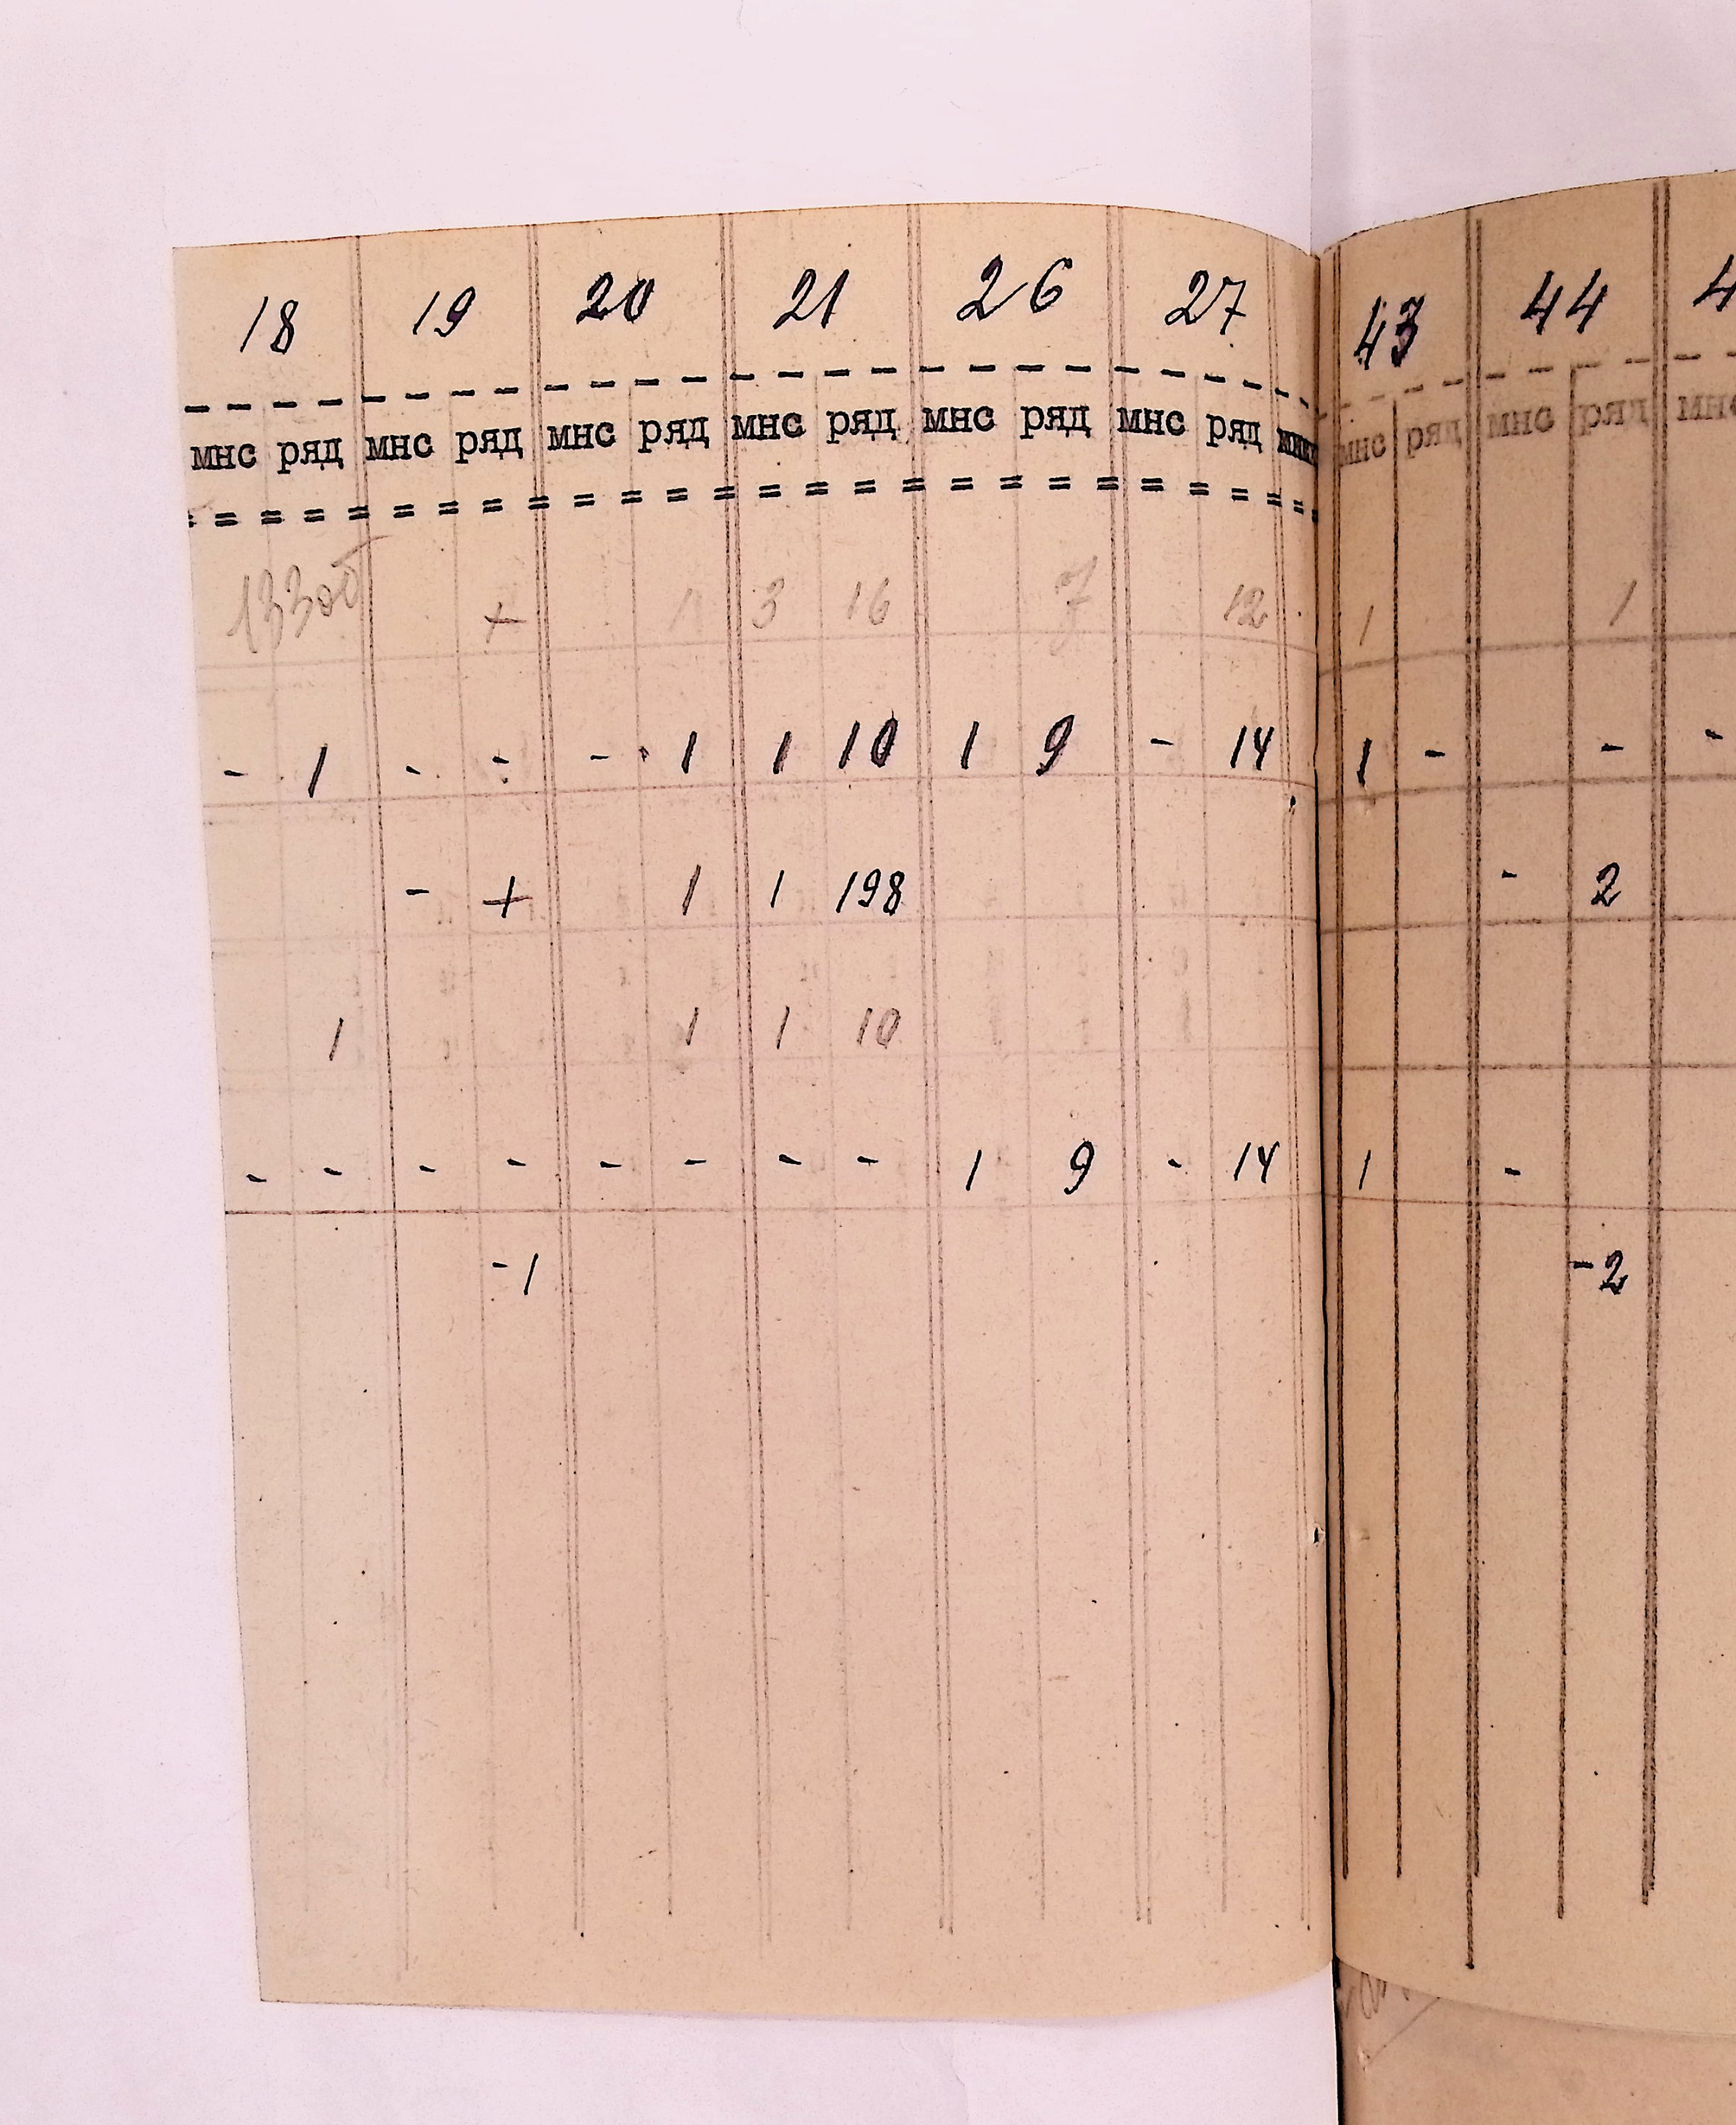 18 19 20 21 26 27 43 44 4
мнс ряд мнс ряд мнс ряд мнс ряд мнс ряд мнс ряд мнс ряд мнс ряд мнс
+ 1 3 16 7 12 1 1
- 1 - - - 1 1 10 1 9 - 14 1 - - -
- + 1 1 198 - 2
1 1 1 10
- - - - - - - - 1 9 - 14 1 -
-1 -2